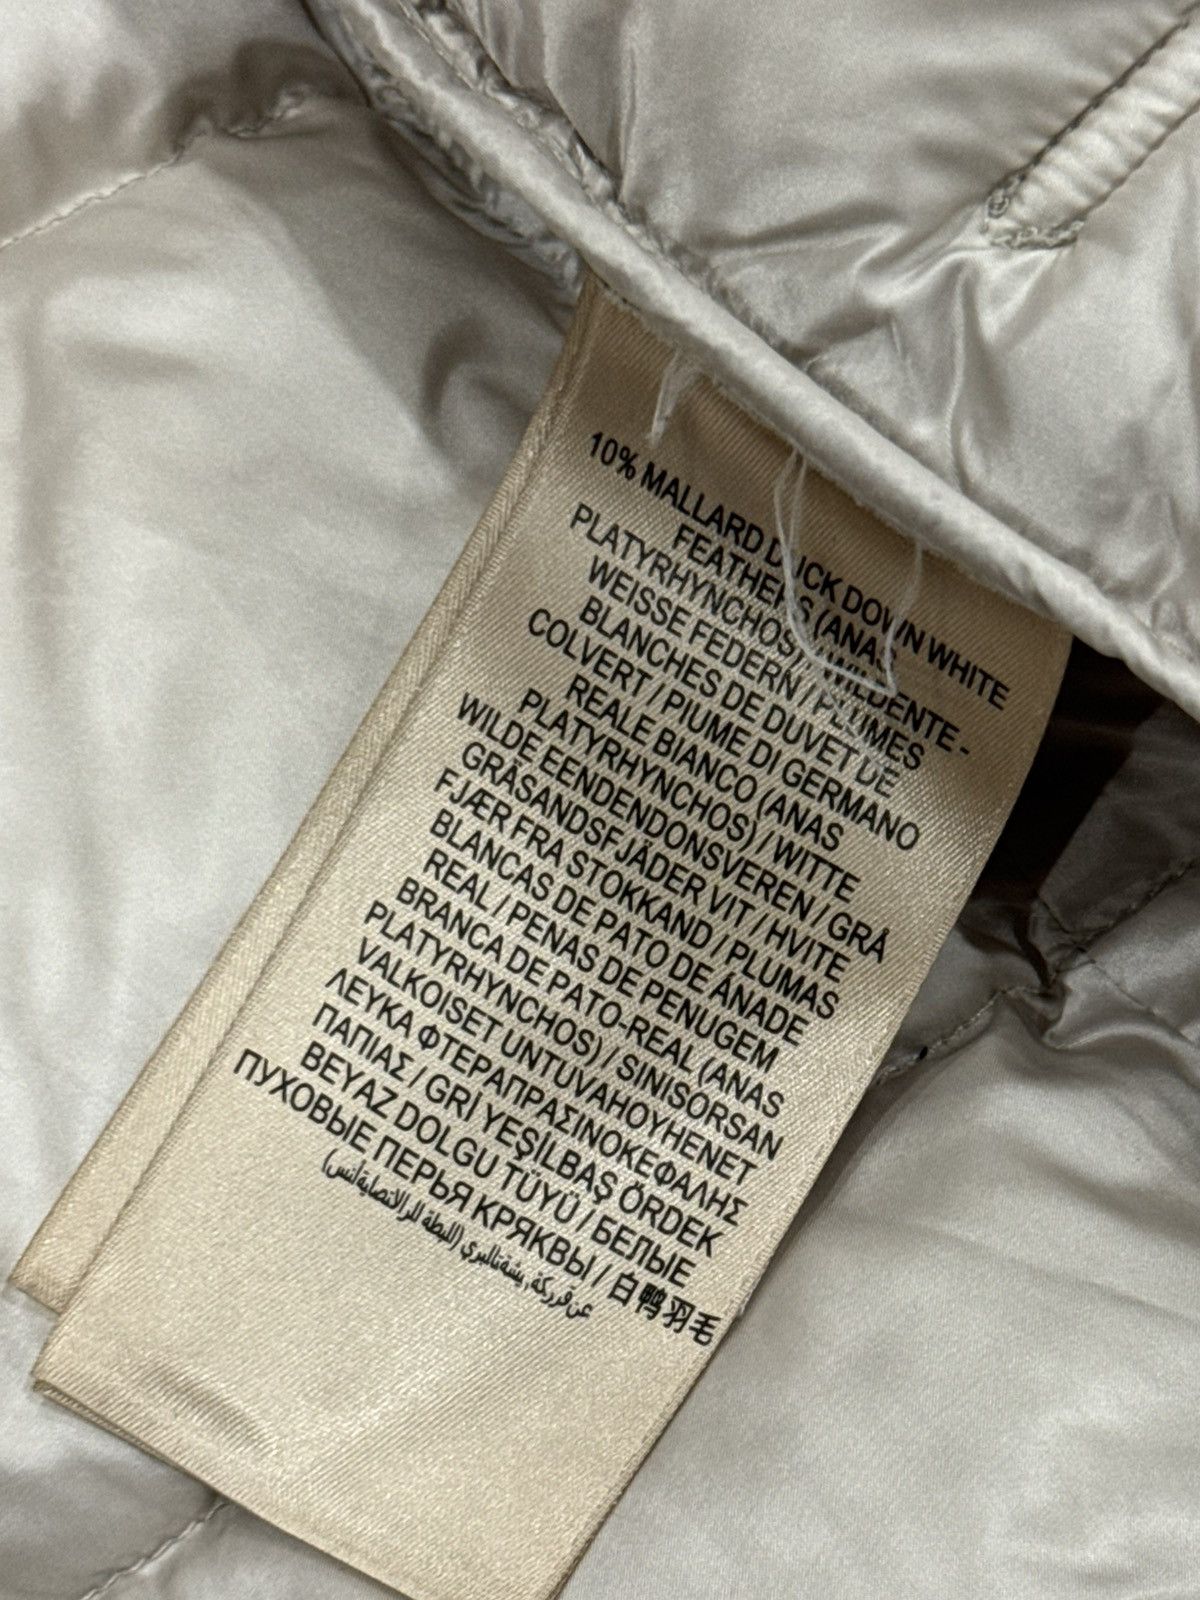 10% MALLARD DUCK DOWN WHITE
FEATHERS (ANAS
PLATYRHYNCHOS) / WILDENTE -
WEISSE FEDERN / PLUMES
BLANCHES DE DUVET DE
COLVERT / PIUME DI GERMANO
REALE BIANCO (ANAS
PLATYRHYNCHOS) / WITTE
WILDE EENDENDONSVEREN / GRÅ
GRÄSANDSFJÄDER VIT / HVITE
FJÆR FRA STOKKAND / PLUMAS
BLANCAS DE PATO DE ÁNADE
REAL / PENAS DE PENUGEM
BRANCA DE PATO-REAL (ANAS
PLATYRHYNCHOS) / SINISORSAN
VALKOISET UNTUVAHOYHENET
ΛΕΥΚΑ ΦΤΕΡΑΠΡΑΣΙΝΟΚΕΦΑΛΗΣ
ΠΑΠΙΑΣ / GRİ YEŞİLBAŞ ÖRDEK
BEYAZ DOLGU TÜYÜ / БЕЛЫЕ
ПУХОВЫЕ ПЕРЬЯ КРЯКВЫ / 白鸭羽毛